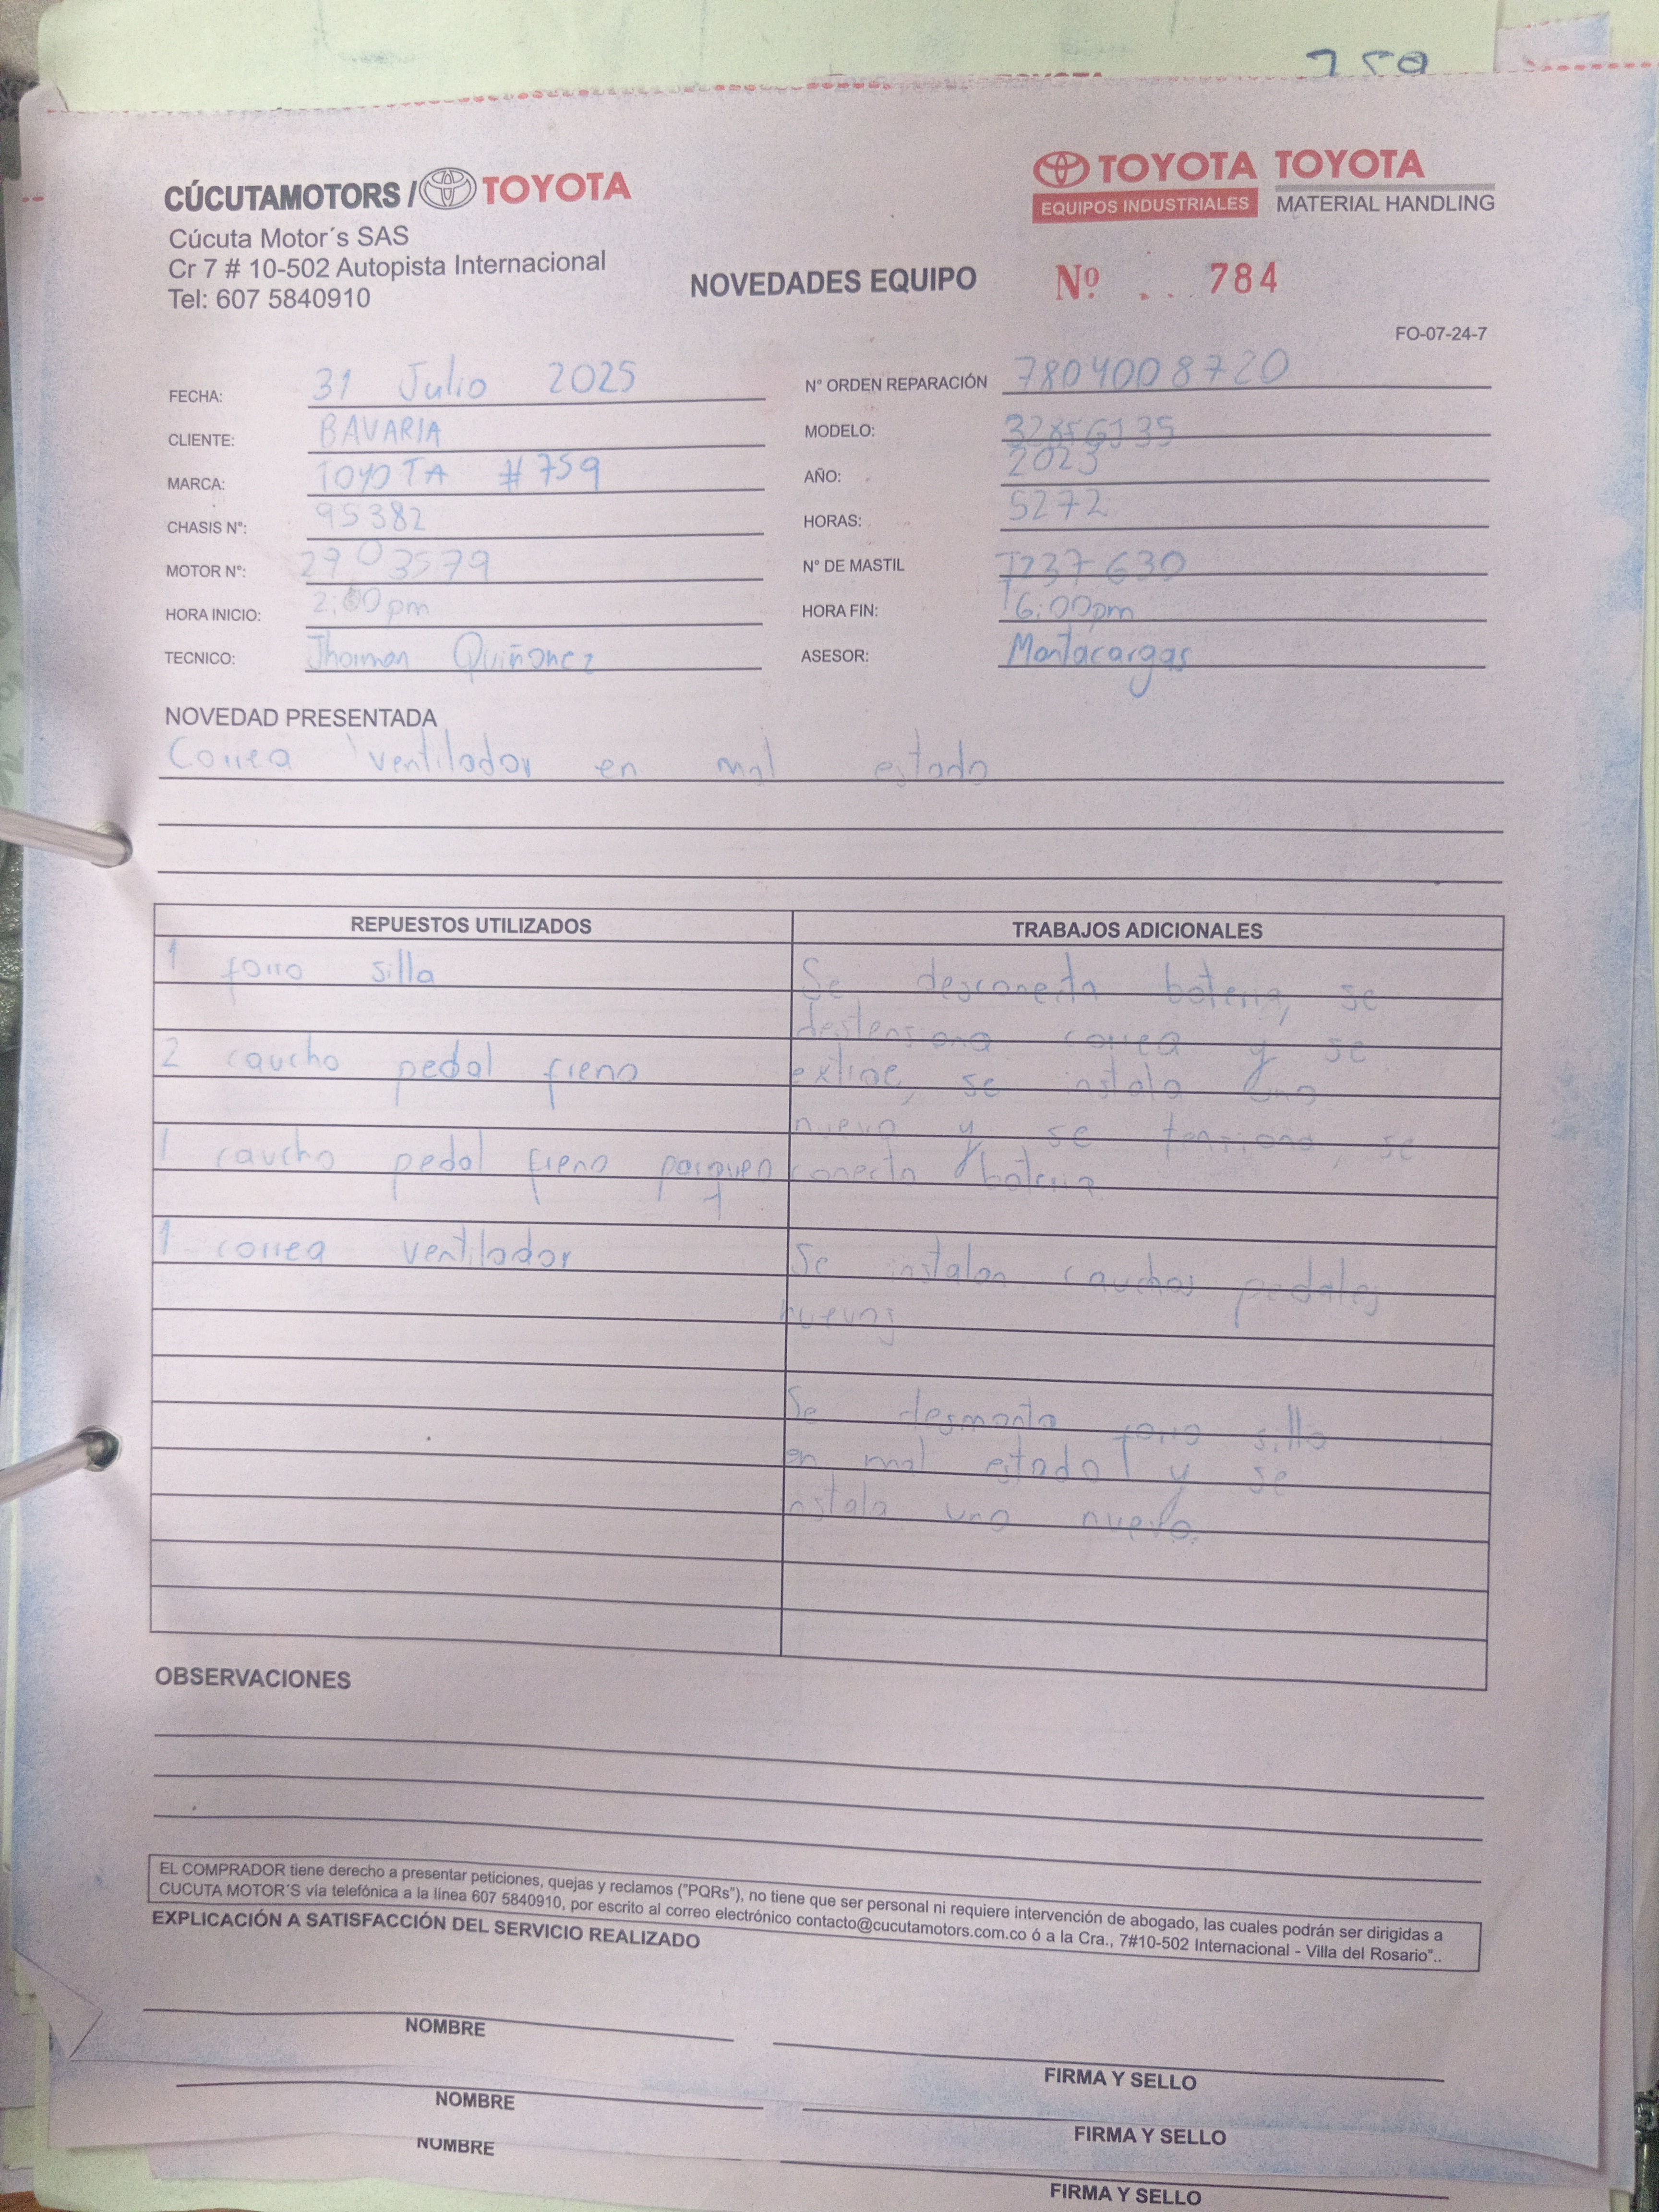 759
CÚCUTAMOTORS / TOYOTA
TOYOTA
EQUIPOS INDUSTRIALES
TOYOTA
MATERIAL HANDLING
Cúcuta Motor´s SAS
Cr 7 # 10-502 Autopista Internacional
Tel: 607 5840910
NOVEDADES EQUIPO
Nº 784
FO-07-24-7
FECHA: 31 Julio 2025
N° ORDEN REPARACIÓN 7804008720
CLIENTE: BAVARIA
MODELO:
MARCA: TOYOTA #759
AÑO: 2023
CHASIS N°: 95382
HORAS: 5272
MOTOR N°: 2703579
N° DE MASTIL 7237630
HORA INICIO: 2:00pm
HORA FIN: 6:00pm
TECNICO: Jhorman Quiñonez
ASESOR: Montacargas
NOVEDAD PRESENTADA
Correa ventilador en mal estado
REPUESTOS UTILIZADOS
1 forro silla
2 caucho pedal freno
1 caucho pedal freno parqueo
1 correa ventilador
TRABAJOS ADICIONALES
Se desconecta bateria, se
destensiona correa y se
extrae, se instala una
nueva y se tensiona, se
conecta bateria
Se instalan cauchos pedales
nuevos
Se desmonta forro silla
en mal estado y se
instala uno nuevo.
OBSERVACIONES
EL COMPRADOR tiene derecho a presentar peticiones, quejas y reclamos ("PQRs"), no tiene que ser personal ni requiere intervención de abogado, las cuales podrán ser dirigidas a
CUCUTA MOTOR´S vía telefónica a la línea 607 5840910, por escrito al correo electrónico contacto@cucutamotors.com.co ó a la Cra., 7#10-502 Internacional - Villa del Rosario"..
EXPLICACIÓN A SATISFACCIÓN DEL SERVICIO REALIZADO
NOMBRE
FIRMA Y SELLO
NOMBRE
FIRMA Y SELLO
NOMBRE
FIRMA Y SELLO